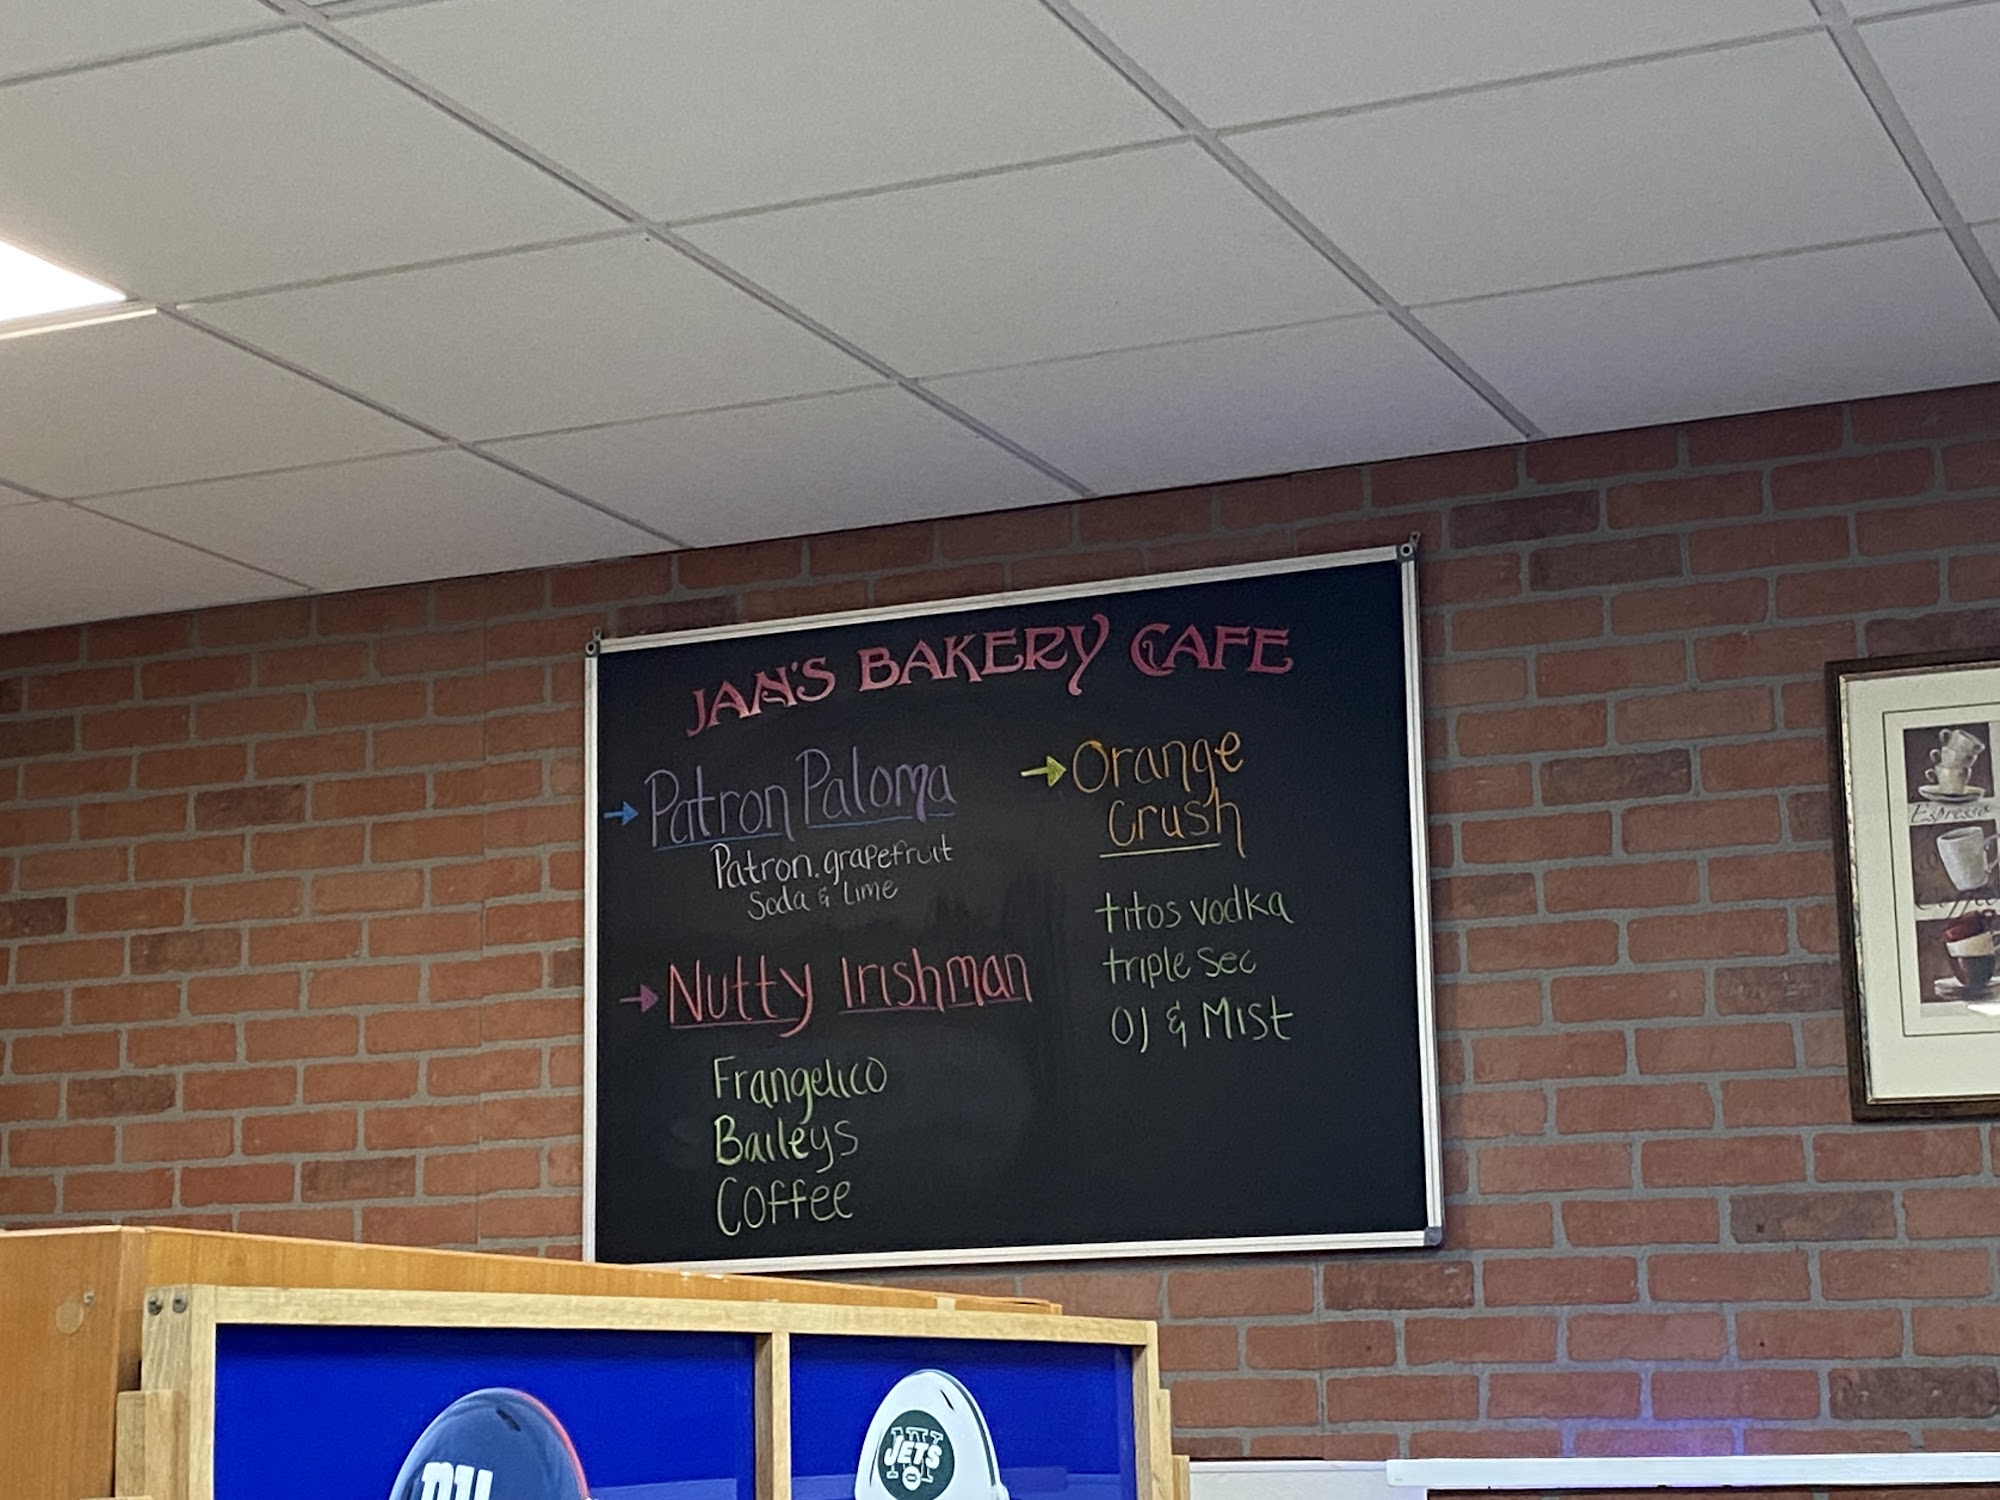 JAN'S BAKERY CAFE
Patron Paloma
Patron. grapefruit
Soda & Lime
Nutty Irishman
Frangelico
Baileys
Coffee
Orange
Crush
titos vodka
triple sec
OJ & Mist
Espresso
ny
JETS